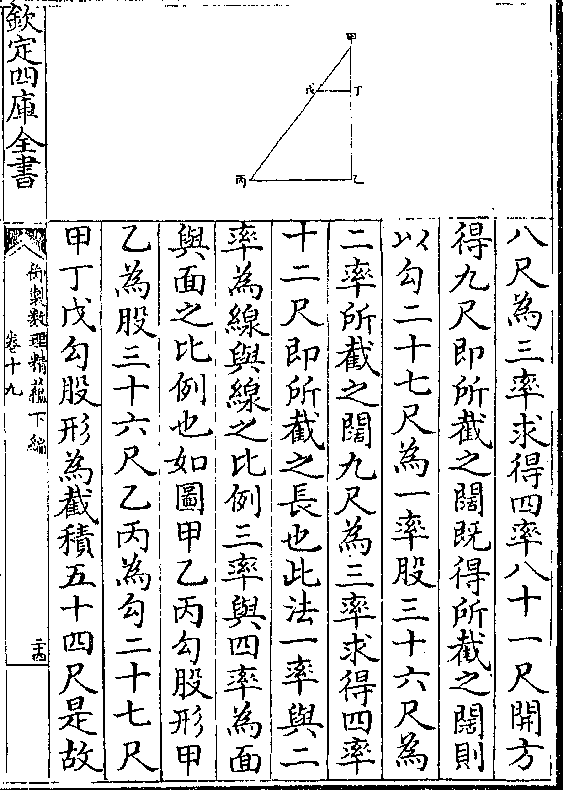 甲
戊
丁
丙
乙
八尺為三率求得四率八十一尺開方
得九尺即所截之闊既得所截之闊則
以勾二十七尺為一率股三十六尺為
二率所截之闊九尺為三率求得四率
十二尺即所截之長也此法一率與二
率為線與線之比例三率與四率為面
與面之比例也如圖甲乙丙勾股形甲
乙為股三十六尺乙丙為勾二十七尺
甲丁戊勾股形為截積五十四尺是故
欽定四庫全書
御製數理精蘊下編
卷十九